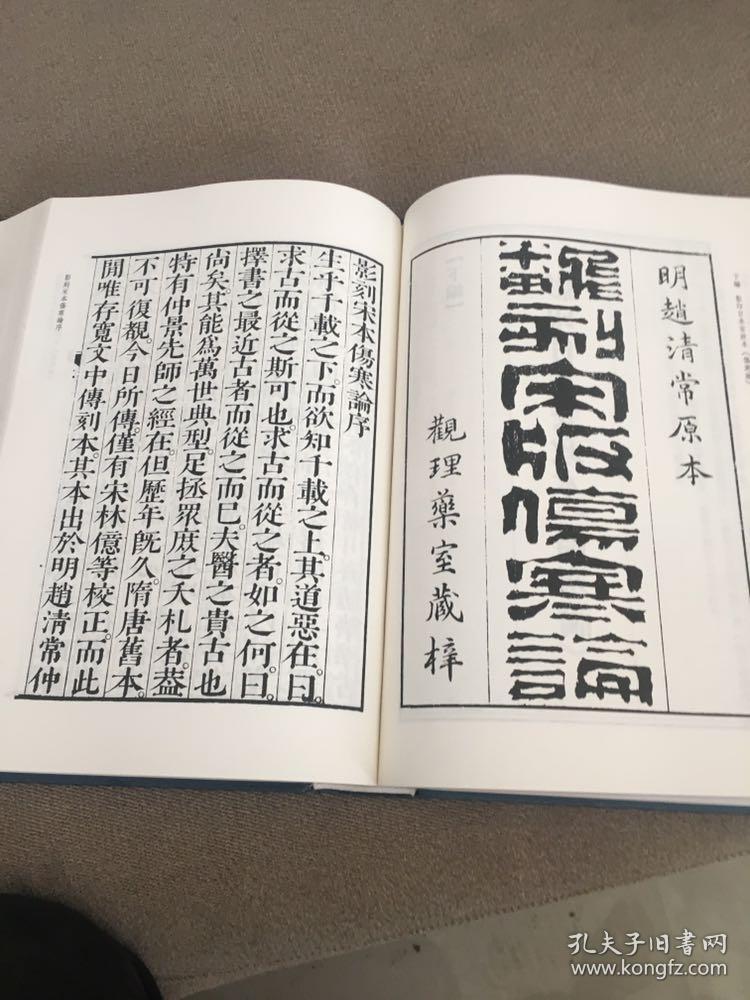 明趙清常原本
飜刻宋版傷寒論
觀理藥室藏梓
影刻宋本傷寒論序
生乎千載之下。而欲知千載之上。其道惡在。曰。
求古而從之斯可也。求古而從之者。如之何。曰。
擇書之最近古者而從之而已。夫醫之貴古也
尙矣。其能爲萬世典型。足拯眾庶之夭札者。葢
特有仲景先師之經在。但歷年旣久。隋唐舊本。
不可復覩。今日所傳。僅有宋林億等校正。而此
間唯存寬文中傳刻本。其本出於明趙淸常仲
影刻宋本傷寒論序
孔夫子旧书网
www.kongfz.com